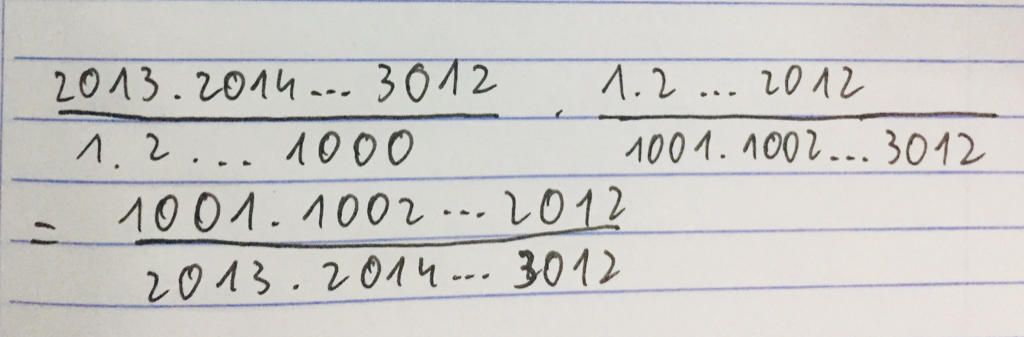 2013.2014... 3012 . 1.2 ... 2012
1.2... 1000 1001.1002...3012
= 1001.1002...2012
2013.2014...3012